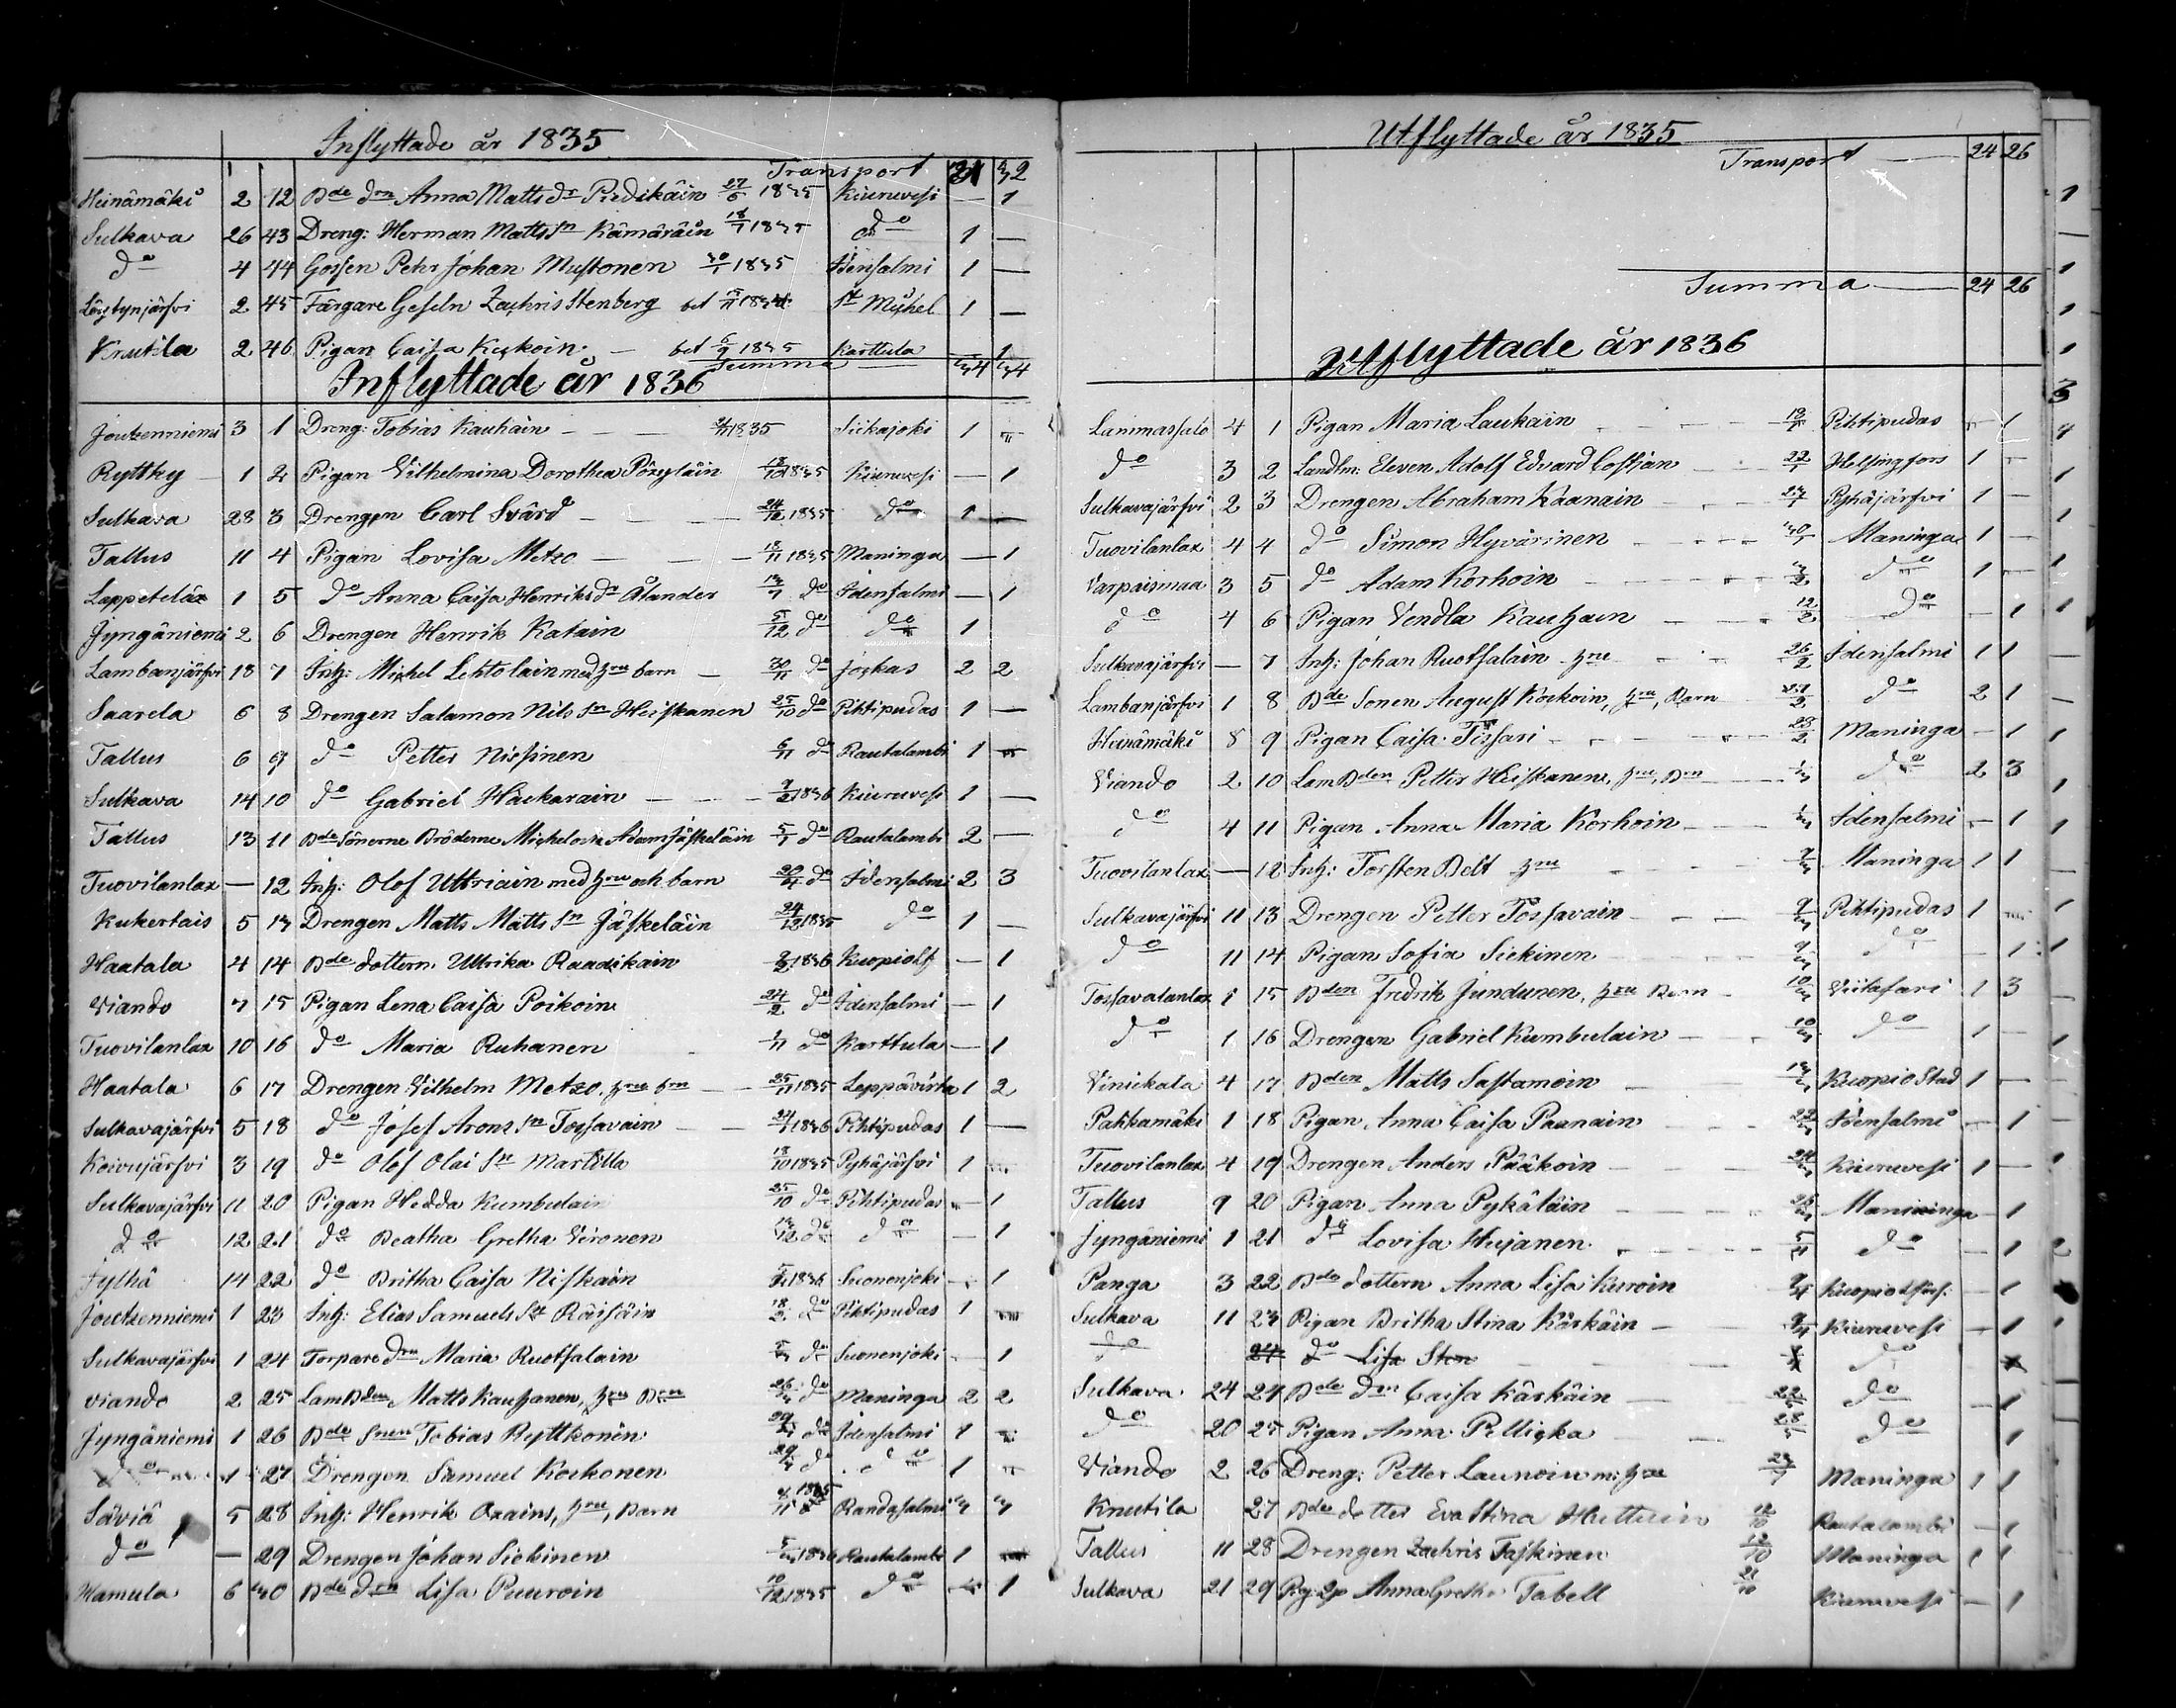 Inflyttade år 1835
Transport 31 32
Heinämäki 2 12 Bde drn Anna Matts dr Pirdikäin 27/6 1835 Kiuruvesi — 1
Sulkava 26 43 Dreng: Herman Matts sn Kämäräin 18/1 1835 do 1 —
do 4 44 Gossen Petr Johan Mustonen 30/1 1835 Idensalmi 1 —
2 45 Färgare Geseln Zachris Stenberg bet St Michel 1 —
Knutila 2 46 Pigan Caisa Kukoin — bet 6/9 1835 Karttula — 1
Summa 34 34
Inflyttade år 1836
Joutzenniemi 3 1 Dreng: Tobias Kauhain — — 1835 Siikajoki 1 —
Ryttky — 1 2 Pigan Vilhelmina Dorothea Pöxyläin 18/10 1835 Kiuruvesi — 1
Sulkava 28 3 Drengen Carl Svärd — — 24/12 1835 do 1 —
Tallus 11 4 Pigan Lovisa Metzo — — 18/11 1835 Maninga — 1
Lappetelax 1 5 do Anna Caisa Henriks dr Ålander 13/7 do Idensalmi — 1
Jyngäniemi 2 6 Drengen Henrik Katain 5/12 do do 1
Lambanjärfvi 18 7 Inh: Michel Lehtolain med hru barn — 30/11 do Jockas 2 2
Saarela 6 8 Drengen Salamon Nils sn Heiskanen 25/10 do Pihtipudas 1 —
Tallus 6 9 do Petter Nissinen 6/11 do Rautalambi 1 —
Sulkava 14 10 do Gabriel Häckarain — — 1836 Kiuruvesi 1 —
Tallus 13 11 Bde Sönerne Bröderne Michel och Adam Jäskeläin 5/1 do Rautalambi 2 —
Tuovilanlax — 12 Inh: Olof Uttriain med hru och barn 20/4 do Idensalmi 2 3
Kukertais 5 13 Drengen Matts Matts sn Jäskeläin 24/12 1835 do 1 —
Haatala 4 14 Bde dottern Ullrika Raadikain 1836 Kuopio lf — 1
Viando 7 15 Pigan Lena Caisa Poikoin 24/2 do Idensalmi — 1
Tuovilanlax 10 16 do Maria Ruhanen do Karttula — 1
Haatala 6 17 Drengen Vilhelm Metzo, hru brn — 25/11 1835 Leppävirta 1 2
Sulkavajärfvi 5 18 do Josef Arons sn Tossavain — — 24/1 1836 Pihtipudas 1 —
Koivujärfvi 3 19 do Olof Olai sn Martilla 18/10 1835 Pyhäjärfvi 1 —
Sulkavajärfvi 11 20 Pigan Hedda Kumbulain 25/10 do Pihtipudas — 1
do 12 21 do Beatha Gretha Vironen 13/12 do do — 1
Jylhä 14 22 do Britha Caisa Niskain 1836 Suonenjoki — 1
Joutzenniemi 1 23 Inh: Elias Samuels sn Räisäin 18/2 do Pihtipudas 1 —
Sulkavajärfvi 1 24 Torpare drn Maria Ruotsalain do Suonenjoki — 1
Viando 2 25 Lam Bden Matts Kauhanen, hru Brn 26/3 do Maninga 2 2
Jyngäniemi 1 26 Bde snen Tobias Ryttkonen do Idensalmi 1 —
do 1 27 Drengen Samuel Kockonen do do 1 —
Säviä 5 28 Inh: Henrik Oxains, hru, Barn 1835 Randasalmi 3 3
do — 29 Drengen Johan Siekinen 1836 Rautalambi 1 —
Hamula 6 30 Bde drn Lisa Puuroin 10/12 1835 do — 1
Utflyttade år 1835
Transport — 24 26
Summa — 24 26
Utflyttade år 1836
Lammassalo 4 1 Pigan Maria Laukain 13/1 Pihtipudas — 1
do 3 2 Landtm: Eleven Adolf Edvard Costian 22/1 Helsingfors 1 —
Sulkavajärfvi 2 3 Drengen Abraham Kaanain 27/1 Pyhäjärfvi 1 —
Tuovilanlax 4 4 do Simon Hyvärinen 30/1 Maninga 1 —
Varpaismaa 3 5 do Adam Korhoin 3/2 do 1 —
do 4 6 Pigan Vendla Kauhain 12/2 do — 1
Sulkavajärfvi — 7 Inh: Johan Ruotsalain hru 26/2 Idensalmi 1 1
Lambanjärfvi 1 8 Bde Sonen August Kockoin, hru, Barn 27/2 do 2 1
Heinämäki 8 9 Pigan Caisa Tissari 28/2 Maninga — 1
Viando 2 10 Lam Bden Petter Heiskanen, hru, Brn 1/3 do 2 3
do 4 11 Pigan Anna Maria Korhoin 1/3 Idensalmi — 1
Tuovilanlax — 12 Inh: Torsten Delt hru Maninga 1 1
Sulkavajärfvi 11 13 Drengen Petter Tossavain 9/3 Pihtipudas 1 —
do 11 14 Pigan Sofia Siekinen 9/3 do — 1
Tossavalanlax 1 15 Bden Fredrik Jundunen, hru Barn 10/3 Viitasari 1 3
do 1 16 Drengen Gabriel Kumbulain 10/3 do 1 —
Vinickala 4 17 Bden Matts Sastamoin 13/3 Kuopio Stad 1 —
Pakkamäki 1 18 Pigan Anna Caisa Paanain 22/3 Idensalmi — 1
Tuovilanlax 4 19 Drengen Anders Pääkoin 24/3 Kiuruvesi 1 —
Tallus 9 20 Pigan Anna Pykäläin 26/3 Maninga — 1
Jyngäniemi 1 21 do Lovisa Hujanen do — 1
Panga 3 22 Bde dottern Anna Lisa Kuroin Kuopio — 1
Sulkava 11 23 Pigan Britha Stina Kärkäin — Kiuruvesi — 1
do 24 do Lisa Sten do
Sulkava 24 24 Bde drn Caisa Kärkäin — do — 1
do 20 25 Pigan Anna Pellicka — do 1
Viando 2 26 Dreng: Petter Launoin m: hru Maninga 1 1
Knutila 27 Bde dotter Eva Stina Huttuin 12/10 Rautalambi — 1
Tallus 11 28 Drengen Zachris Taskinen 12/10 Maninga 1 1
Sulkava 21 29 Anna Gretha Tabell 21/10 Kiuruvesi — 1